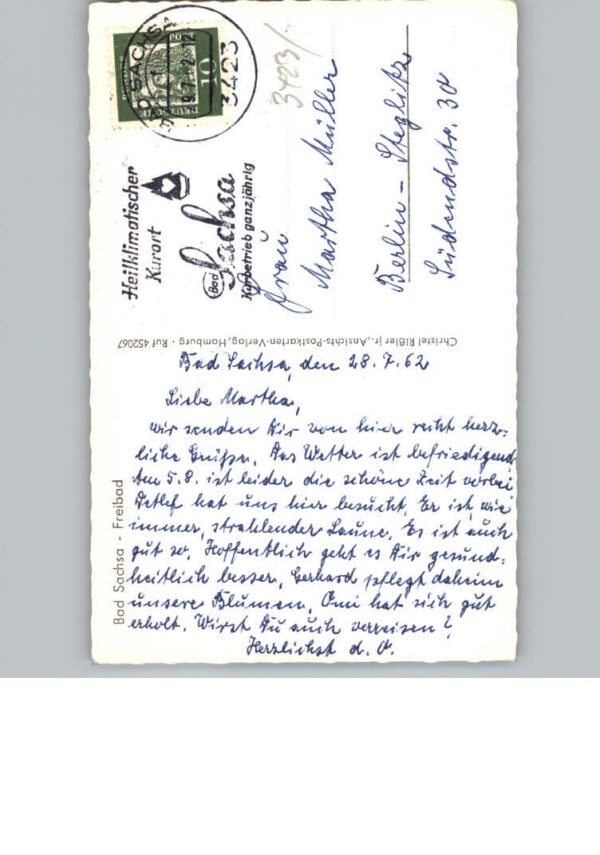 Bad Sachsa, den 28.7.62
Liebe Martha,
wir senden Dir von hier recht herz-
liche Grüße. Das Wetter ist befriedigend
Am 5.8. ist leider die schöne Zeit vorbei
Detlef hat uns hier besucht. Er ist, wie
immer, strahlender Laune. Es ist auch
gut so. Hoffentlich geht es Dir gesund-
heitlich besser. Gerhard pflegt daheim
unsere Blumen. Omi hat sich gut
erholt. Wirst Du auch verreisen?
Herzlichst d. O.
Bad Sachsa - Freibad
Christel Rißler jr., Ansichts-Postkarten-Verlag, Hamburg · Ruf 452067
Heilklimatischer
Kurort
Bad Sachsa
Kurbetrieb ganzjährig
BAD SACHSA
3423
DEUTSCHE
POST
10
3423/
Frau
Martha Müller
Berlin - Steglitz
Südendstr. 30